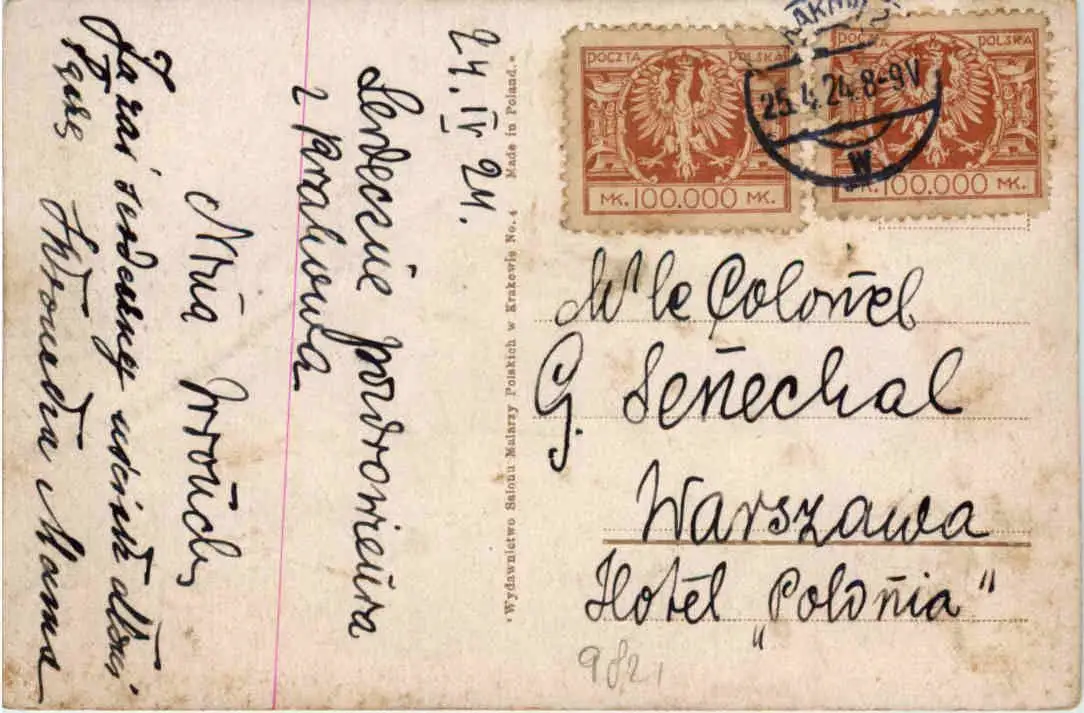 24. IV 24.
Serdeczne pozdrowienia
z Krakowa
Łączę serdeczny uścisk dłoni
Mama
Wydawnictwo Salonu Malarzy Polskich w Krakowie No. 4 Made in Poland.
POCZTA POLSKA
MK. 100.000 MK.
POCZTA POLSKA
MK. 100.000 MK.
25.4.24.8-9V
W
Mr le Colonel
G. Señechal
Warszawa
Hotel „Polonia"
982,